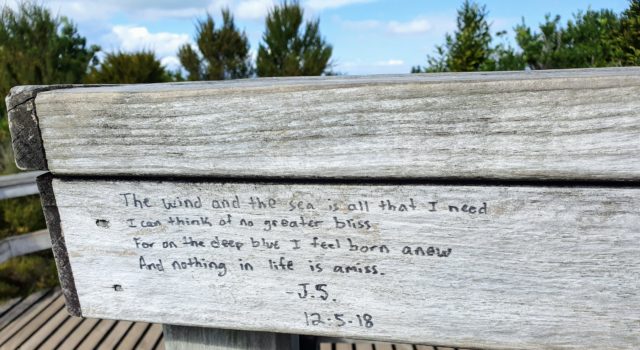 The wind and the sea is all that I need
I can think of no greater bliss
For on the deep blue I feel born anew
And nothing in life is amiss.
-J.S.
12-5-18